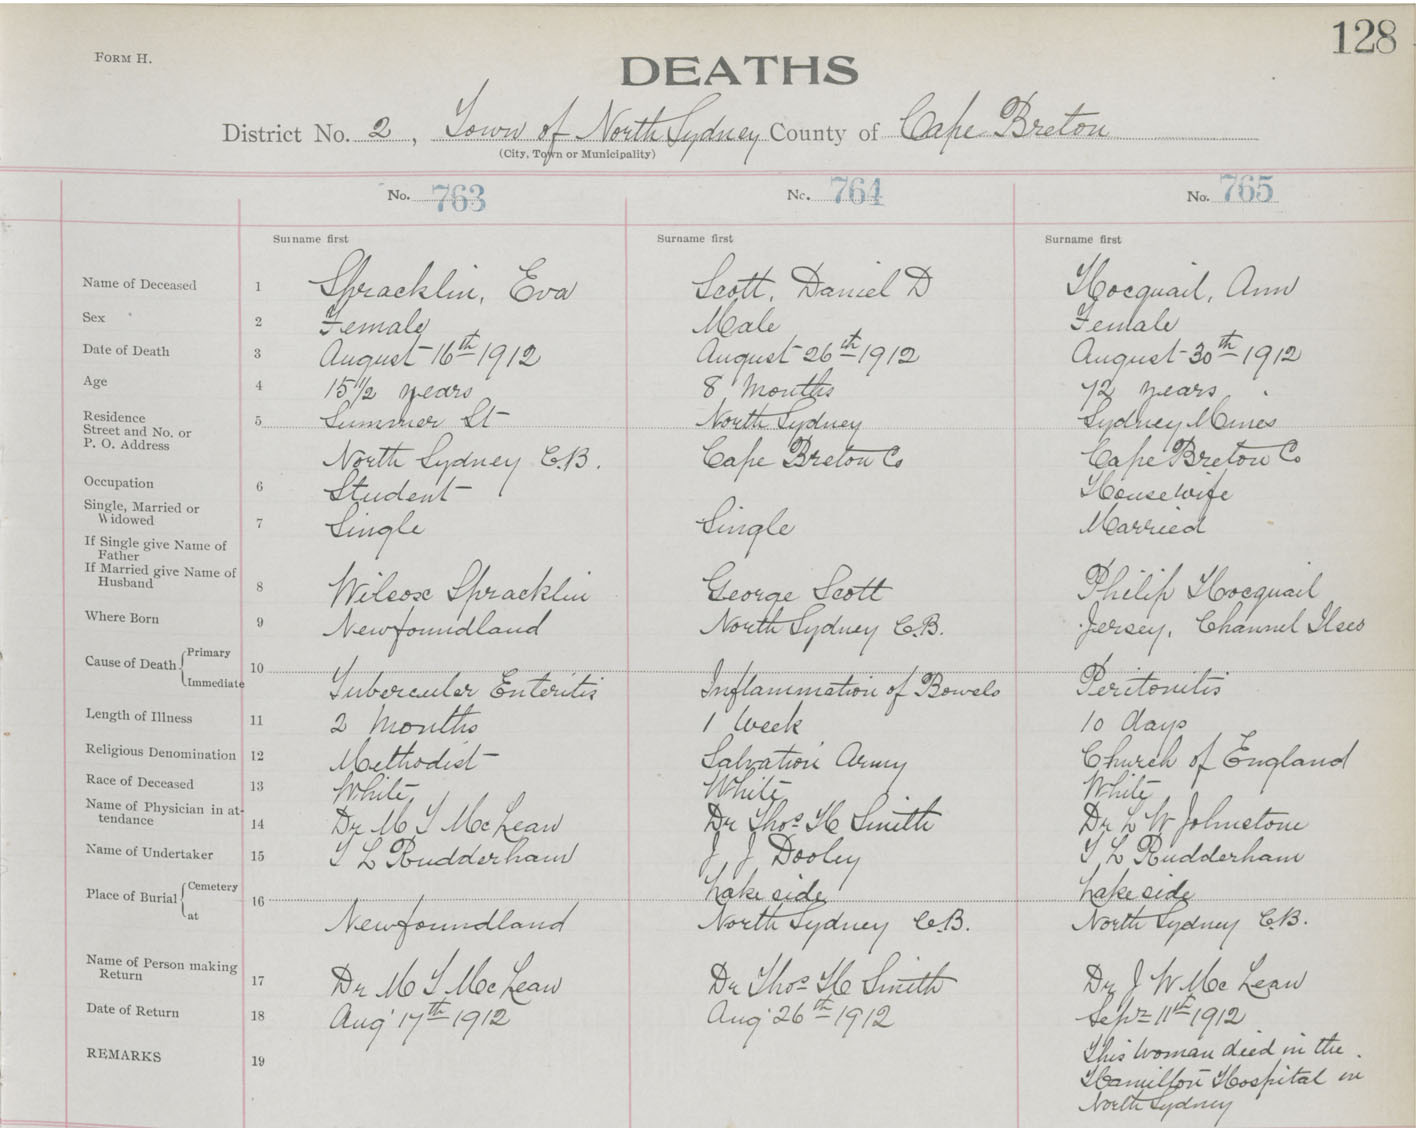 128
FORM H.
DEATHS
District No. 2, Town of North Sydney County of Cape Breton
(City, Town or Municipality)
No. 763 No. 764 No. 765
Surname first Surname first Surname first
Name of Deceased 1 Spracklin, Eva Scott, Daniel D Hocquail, Ann
Sex 2 Female Male Female
Date of Death 3 August 16th 1912 August 26th 1912 August 30th 1912
Age 4 15 1/2 years 8 Months 72 years
Residence
Street and No. or 5 Summer St North Sydney Sydney Mines
P. O. Address
North Sydney C.B. Cape Breton Co Cape Breton Co
Occupation 6 Student Housewife
Single, Married or
Widowed 7 Single Single Married
If Single give Name of
Father
If Married give Name of
Husband 8 Wilcox Spracklin George Scott Philip Hocquail
Where Born 9 Newfoundland North Sydney C.B. Jersey, Channel Isles
Cause of Death Primary
10
Immediate Tubercular Enteritis Inflammation of Bowels Peritonitis
Length of Illness 11 2 Months 1 Week 10 days
Religious Denomination 12 Methodist Salvation Army Church of England
Race of Deceased 13 White White White
Name of Physician in at-
tendance 14 Dr M T McLean Dr Thos H Smith Dr L W Johnstone
Name of Undertaker 15 T L Rudderham J J Dooley T L Rudderham
Place of Burial Cemetery 16 Lakeside Lakeside
at Newfoundland North Sydney C.B. North Sydney C.B.
Name of Person making
Return 17 Dr M T McLean Dr Thos H Smith Dr J W McLean
Date of Return 18 Aug 17th 1912 Aug 26th 1912 Sepr 11th 1912
REMARKS 19 This woman died in the
Hamilton Hospital in
North Sydney